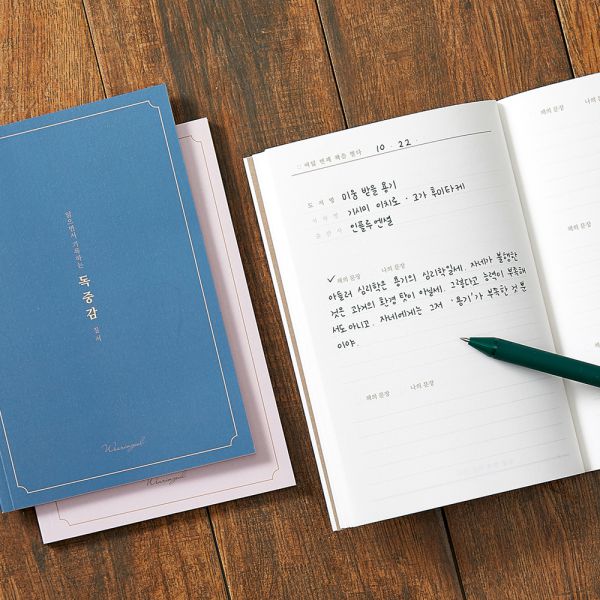 읽으면서 기록하는 독중감 필서
Wearingeul
Wearingeul
번째 책을 펼치다 10. 22.
도서명 미움 받을 용기
저자명 기시미 이치로 · 고가 후미타케
출판사 인플루엔셜
✓책의 문장 나의 문장
아들러 심리학은 용기의 심리학일세. 자네가 불행한
것은 과거의 환경 탓이 아닐세. 그렇다고 능력이 부족해
서도 아니고. 자네에게는 그저 '용기'가 부족한 것 뿐
이야.
책의 문장 나의 문장
책의 문장 나의 문장
책의 문장 나의 문장
책의 문장 나의 문장